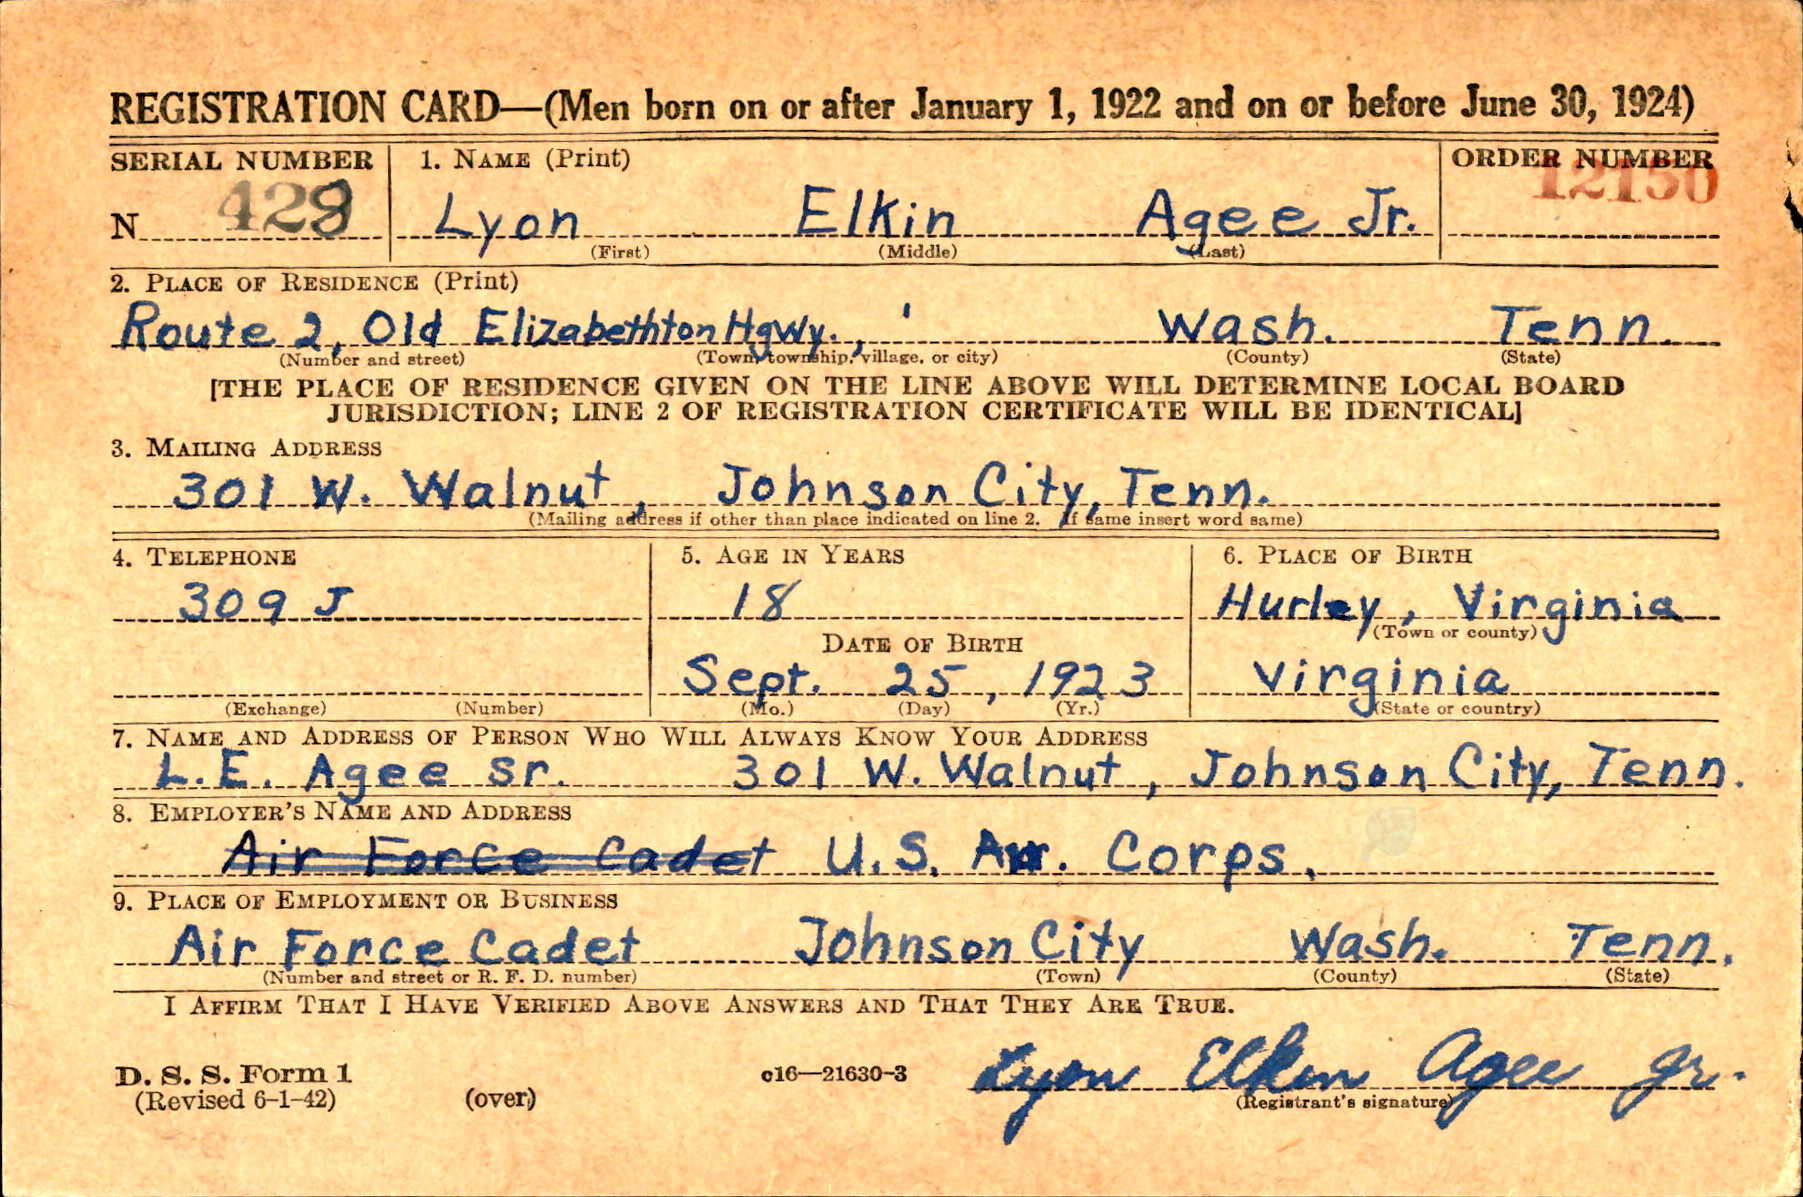 REGISTRATION CARD—(Men born on or after January 1, 1922 and on or before June 30, 1924)
SERIAL NUMBER 1. NAME (Print) ORDER NUMBER
12150
N 429 Lyon Elkin Agee Jr.
(First) (Middle) (Last)
2. PLACE OF RESIDENCE (Print)
Route 2, Old Elizabethton Hgwy., Wash. Tenn.
(Number and street) (Town, township, village, or city) (County) (State)
[THE PLACE OF RESIDENCE GIVEN ON THE LINE ABOVE WILL DETERMINE LOCAL BOARD
JURISDICTION; LINE 2 OF REGISTRATION CERTIFICATE WILL BE IDENTICAL]
3. MAILING ADDRESS
301 W. Walnut, Johnson City, Tenn.
(Mailing address if other than place indicated on line 2. If same insert word same)
4. TELEPHONE 5. AGE IN YEARS 6. PLACE OF BIRTH
309 J 18 Hurley, Virginia
(Town or county)
DATE OF BIRTH
Sept. 25, 1923 Virginia
(Exchange) (Number) (Mo.) (Day) (Yr.) (State or country)
7. NAME AND ADDRESS OF PERSON WHO WILL ALWAYS KNOW YOUR ADDRESS
L.E. Agee Sr. 301 W. Walnut, Johnson City, Tenn.
8. EMPLOYER'S NAME AND ADDRESS
Air Force Cadet U.S. Air. Corps.
9. PLACE OF EMPLOYMENT OR BUSINESS
Air Force Cadet Johnson City Wash. Tenn.
(Number and street or R. F. D. number) (Town) (County) (State)
I AFFIRM THAT I HAVE VERIFIED ABOVE ANSWERS AND THAT THEY ARE TRUE.
D. S. S. Form 1 c16—21630-3 Lyon Elkin Agee Jr.
(Revised 6-1-42) (over) (Registrant's signature)